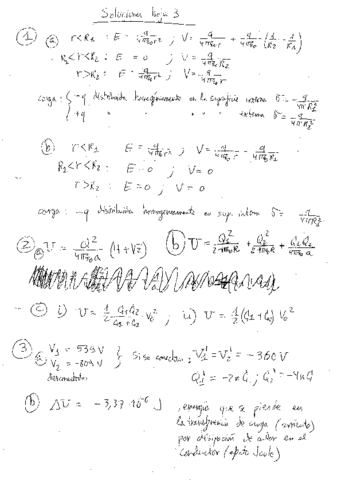 Soluciones hoja 3
① ⓐ r<R₁ : E = q/4πε₀r² ; V = q/4πε₀r + q/4πε₀ (1/R₂ - 1/R₁)
R₁<r<R₂ : E = 0 ; V = q/4πε₀R₂
r>R₂ : E = q/4πε₀r² ; V = q/4πε₀r
carga : { -q distribuida homogéneamente en la superficie interna σ = -q/4πR₁²
+q " " " " externa σ = q/4πR₂²
ⓑ r<R₁ E = q/4πε₀r² ; V = q/4πε₀r - q/4πε₀R₁
R₁<r<R₂ : E = 0 ; V = 0
r>R₂ : E = 0 ; V = 0
carga : -q distribuida homogéneamente en sup. interna σ = -q/4πR₁²
② ⓐ U = Q²/4πε₀a (4+√2) ⓑ U =
ⓒ i) U = 1/2 C₁+C₂ V₀² ; ii) U = 1/2 (C₁+C₂) V₀²
③ ⓐ V₁ = 539 V } Si se conectan : V₁' = V₂' = -360 V
V₂ = -809 V
desconectadas Q₁' = ; Q₂' =
ⓑ ΔU = -3,37 · 10⁻⁶ J , energía que se pierde en
la transferencia de carga
por disipación de calor en el
conductor (efecto Joule)